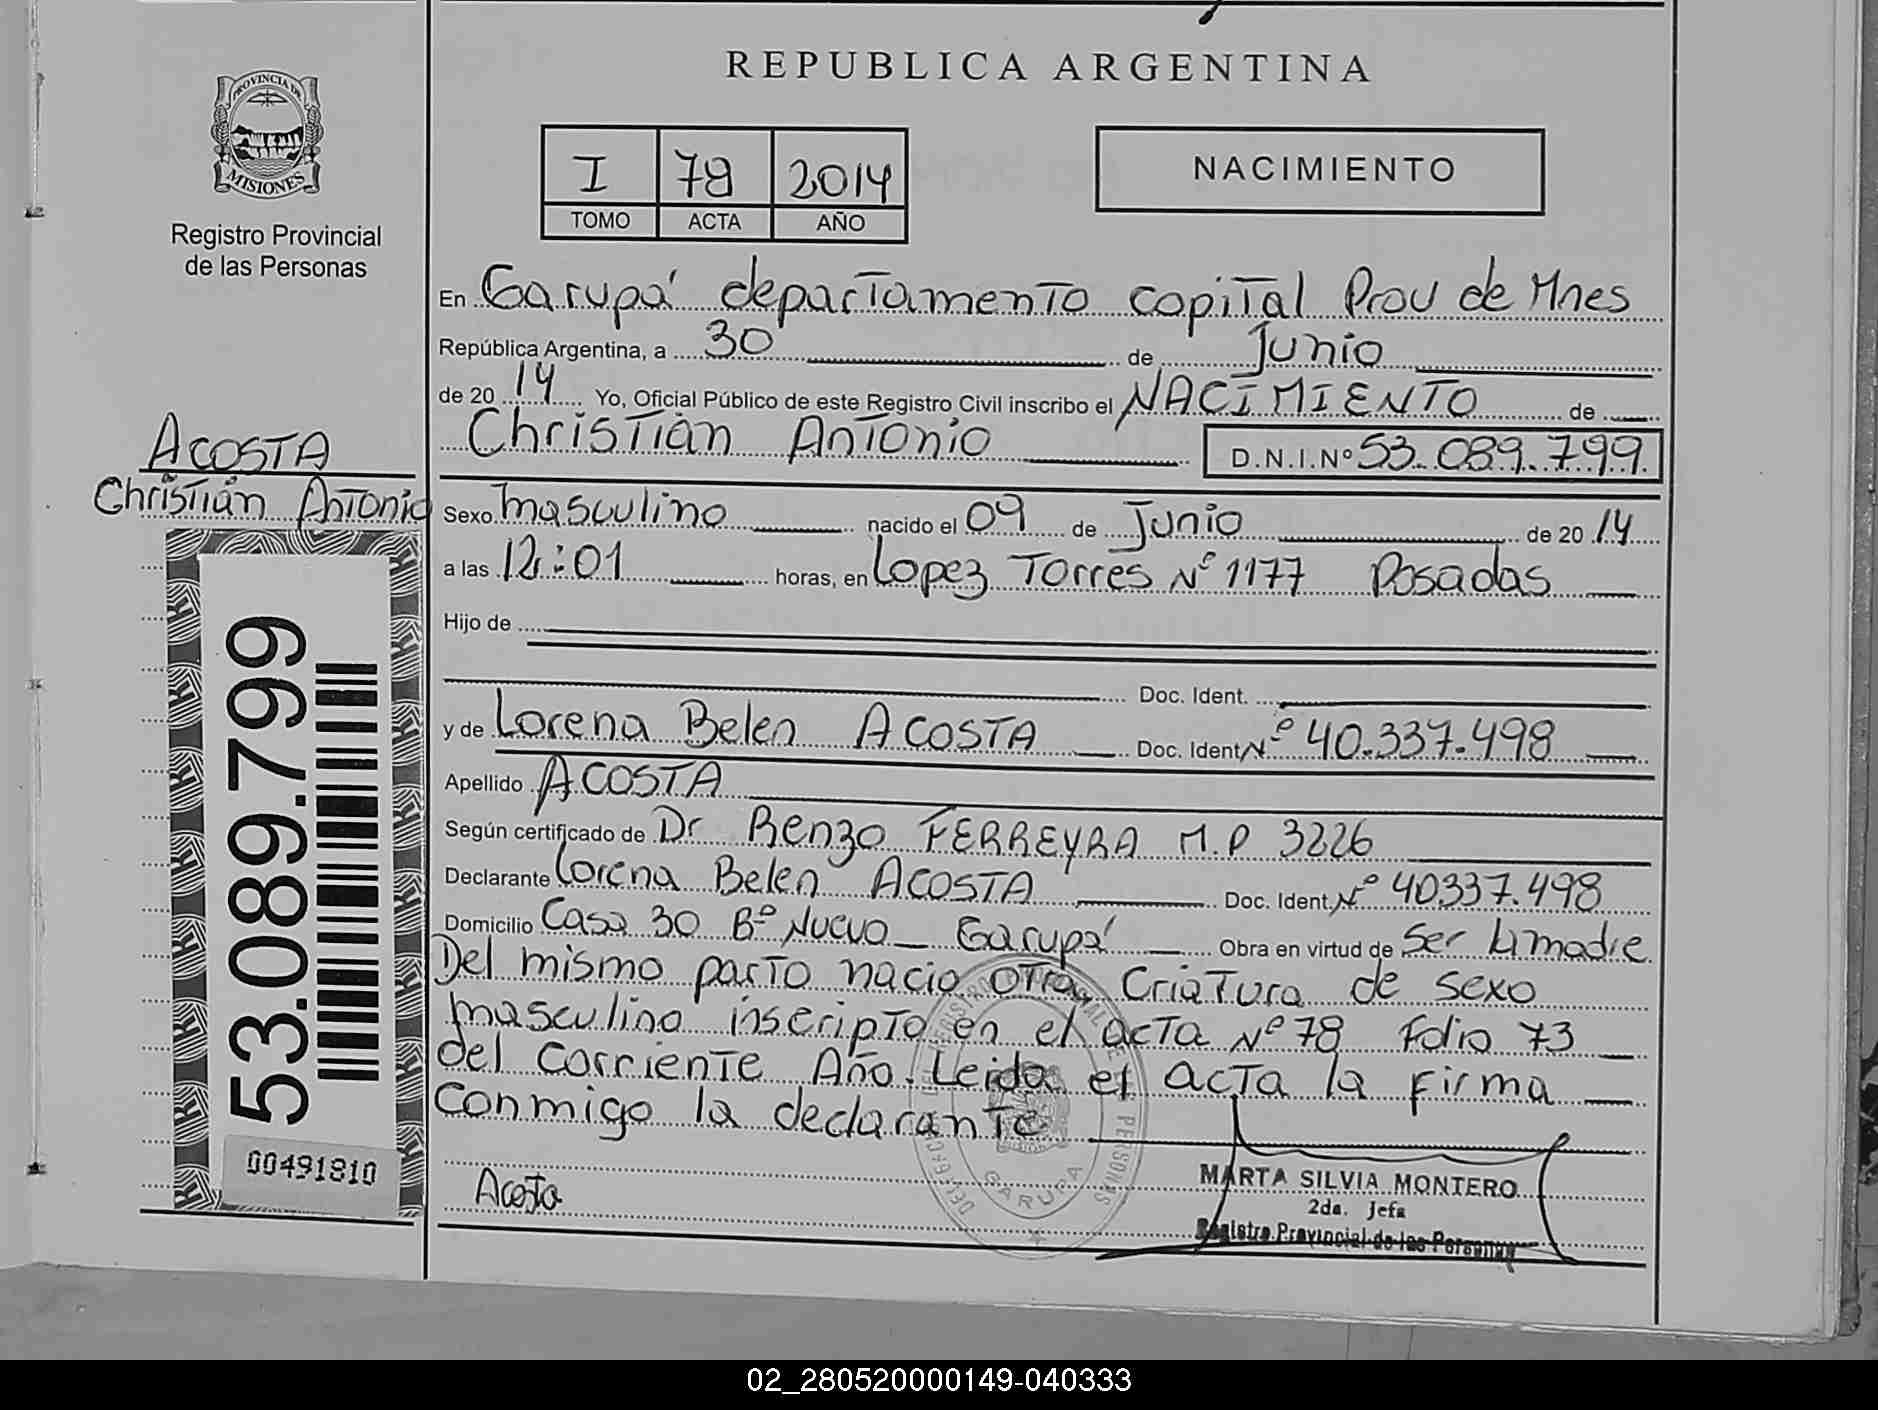 REPUBLICA ARGENTINA
PROVINCIA DE
MISIONES
Registro Provincial
de las Personas
I 79 2014
TOMO ACTA AÑO
NACIMIENTO
En Garupá departamento capital Prov de Mnes
República Argentina, a 30 de Junio
de 20 14 Yo, Oficial Público de este Registro Civil inscribo el NACIMIENTO de
Christian Antonio D.N.I.Nº 53.089.799
ACOSTA
Christian Antonio
Sexo masculino nacido el 09 de Junio de 20 14
a las 12:01 horas, en Lopez Torres Nº 1177 Posadas
Hijo de
Doc. Ident.
y de Lorena Belen ACOSTA Doc. Ident Nº 40.337.498
Apellido ACOSTA
Según certificado de Dr Renzo FERREYRA M.P 3226
Declarante Lorena Belen ACOSTA Doc. Ident. Nº 40337.498
Domicilio Casa 30 Bº Nuevo _ Garupá Obra en virtud de Ser la madre.
Del mismo parto nacio otra Criatura de sexo
masculino inscripto en el acta Nº 78 Folio 73
del corriente Año. Leida el acta la firma
conmigo la declarante
53.089.799
00491810
Acosta
GARUPA
MARTA SILVIA MONTERO
2da. Jefa
Registro Provincial de las Personas
02_280520000149-040333